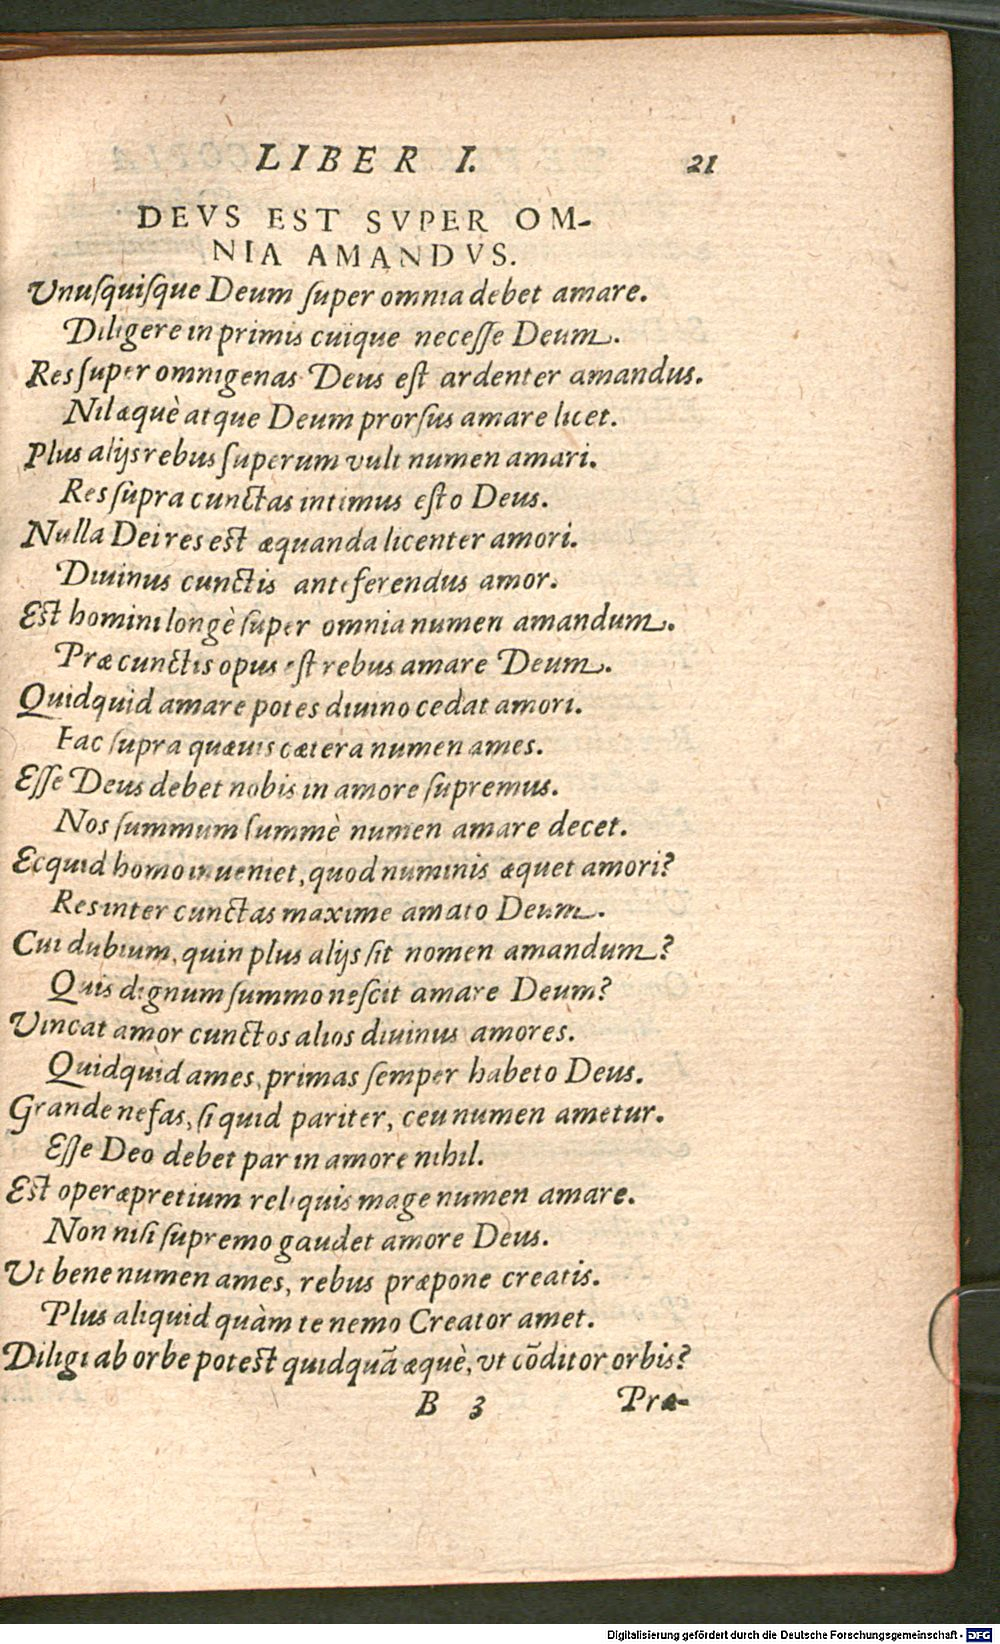 LIBER I. 21
DEVS EST SVPER OM-
NIA AMANDVS.
Vnuſquiſque Deum ſuper omnia debet amare.
Diligere in primis cuique neceſſe Deum.
Res ſuper omnigenas Deus eſt ardenter amandus.
Nil æquè atque Deum prorſus amare licet.
Plus alijs rebus ſuperum vult numen amari.
Res ſupra cunctas intimus eſto Deus.
Nulla Dei res est æquanda licenter amori.
Diuinus cunctis anteferendus amor.
Est homini longè ſuper omnia numen amandum.
Præ cunctis opus eſt rebus amare Deum.
Quidquid amare potes diuino cedat amori.
Fac ſupra quæuis cætera numen ames.
Eſſe Deus debet nobis in amore ſupremus.
Nos ſummum ſummè numen amare decet.
Ecquid homo inueniet, quod numinis æquet amori?
Res inter cunctas maxime amato Deum.
Cui dubium, quin plus alijs ſit nomen amandum?
Quis dignum ſummo neſcit amare Deum?
Vincat amor cunctos alios diuinus amores.
Quidquid ames, primas ſemper habeto Deus.
Grande nefas, ſi quid pariter, ceu numen ametur.
Eſſe Deo debet par in amore nihil.
Est operæpretium reliquis mage numen amare.
Non niſi ſupremo gaudet amore Deus.
Vt bene numen ames, rebus præpone creatis.
Plus aliquid quàm te nemo Creator amet.
Diligi ab orbe potest quidquã æquè, vt cõditor orbis?
B 3 Præ-
Digitalisierung gefördert durch die Deutsche Forschungsgemeinschaft - DFG